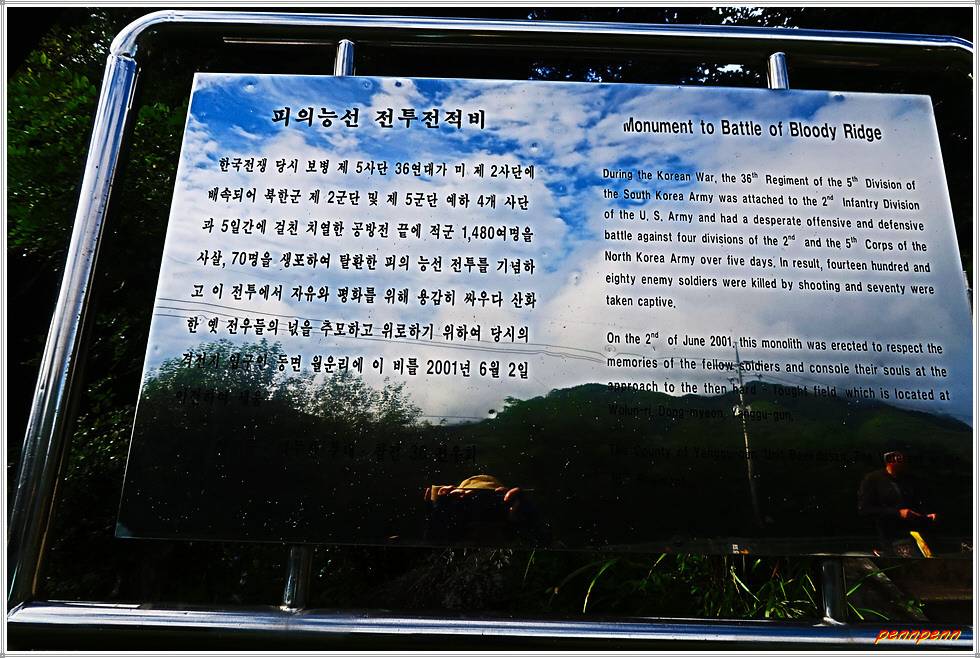 피의능선 전투전적비
한국전쟁 당시 보병 제 5사단 36연대가 미 제 2사단에
배속되어 북한군 제 2군단 및 제 5군단 예하 4개 사단
과 5일간에 걸친 치열한 공방전 끝에 적군 1,480여명을
사살, 70명을 생포하여 탈환한 피의 능선 전투를 기념하
고 이 전투에서 자유와 평화를 위해 용감히 싸우다 산화
한 옛 전우들의 넋을 추모하고 위로하기 위하여 당시의
격전지 입구인 동면 월운리에 이 비를 2001년 6월 2일
Monument to Battle of Bloody Ridge
During the Korean War, the 36th Regiment of the 5th Division of
the South Korea Army was attached to the 2nd Infantry Division
of the U. S. Army and had a desperate offensive and defensive
battle against four divisions of the 2nd and the 5th Corps of the
North Korea Army over five days. In result, fourteen hundred and
eighty enemy soldiers were killed by shooting and seventy were
taken captive.
On the 2nd of June 2001, this monolith was erected to respect the
memories of the fellow soldiers and console their souls at the
approach to the then hard - fought field, which is located at
Wolun-ri, Dong-myeon, Yanggu-gun.
The County of Yanggu-gun, Unit Baekdusan, The
pennpenn